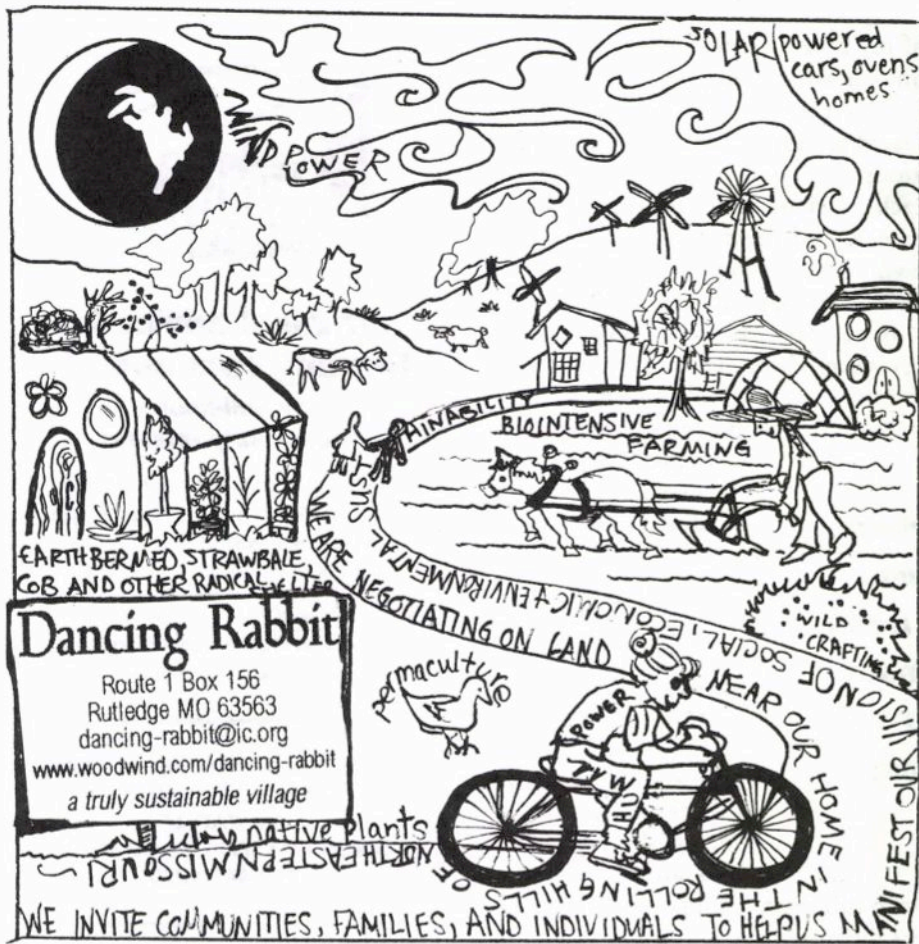 SOLAR powered
cars, ovens
homes
WIND POWER
BIOINTENSIVE
FARMING
EARTHBERMED, STRAWBALE,
COB AND OTHER RADICAL SHELTER
WILD
CRAFTING
Dancing Rabbit
Route 1 Box 156
Rutledge MO 63563
dancing-rabbit@ic.org
www.woodwind.com/dancing-rabbit
a truly sustainable village
permaculture
POWER
native plants
WE ARE NEGOTIATING ON LAND NEAR OUR HOME IN THE ROLLING HILLS OF NORTHEASTERN MISSOURI
WE INVITE COMMUNITIES, FAMILIES, AND INDIVIDUALS TO HELP US MANIFEST OUR VISION OF SOCIAL, ECONOMIC & ENVIRONMENTAL SUSTAINABILITY